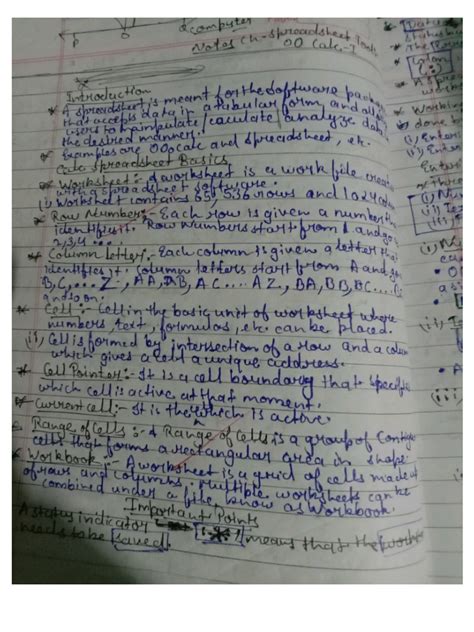 P O
computer
Notes Ch-Spreadsheet Tools
OO Calc-7
Introduction
* A spreadsheet is meant for the software package
that accepts data in a tabular form and allows
users to manipulate / caculate / analyze data
the desired manner.
* Examples are OO calc and spreadsheet, etc.
Calc spreadsheet Basics
* Worksheet:- A worksheet is a work file create
with a spreadsheet software.
(i) Worksheet contains 65,536 rows and 1024 column
* Row Number:- Each row is given a number that
identifies it. Row numbers start from 1 and go
2,3,4 ...
* Column letter:- Each column is given a letter that
identifies it. Column letters start from A and go
B, C, ... Z, AA, AB, AC ... AZ, BA, BB, BC ...
and so on.
* Cell:- Cell in the basic unit of worksheet where
numbers, text, formulas, etc. can be placed.
(ii) Cell is formed by intersection of a row and a column
which gives a cell a unique address.
* Cell Pointer:- It is a cell boundary that specifies
which cell is active at that moment.
* Current cell:- It is the which is active.
* Range of cells:- A Range of cells is a group of contig
cells that forms a rectangular area in shape.
* Workbook:- A worksheet is a grid of cells made
of raws and columns. Multiple worksheets can be
combined under a file know as Workbook.
Important Points
A status indicator means that the work
needs to be saved